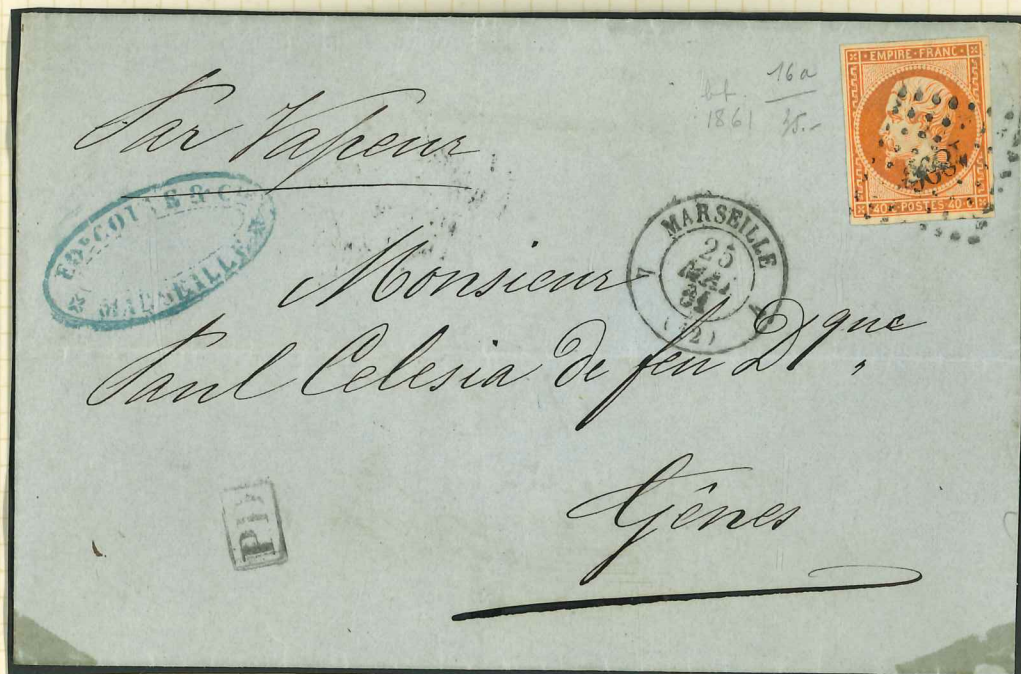 16a
1861 35.-
EMPIRE·FRANC·
40·POSTES·40
Par Vapeur
MARSEILLE
MARSEILLE
25
MAI
61
Monsieur
Paul Celesia de feu Dque
Gênes